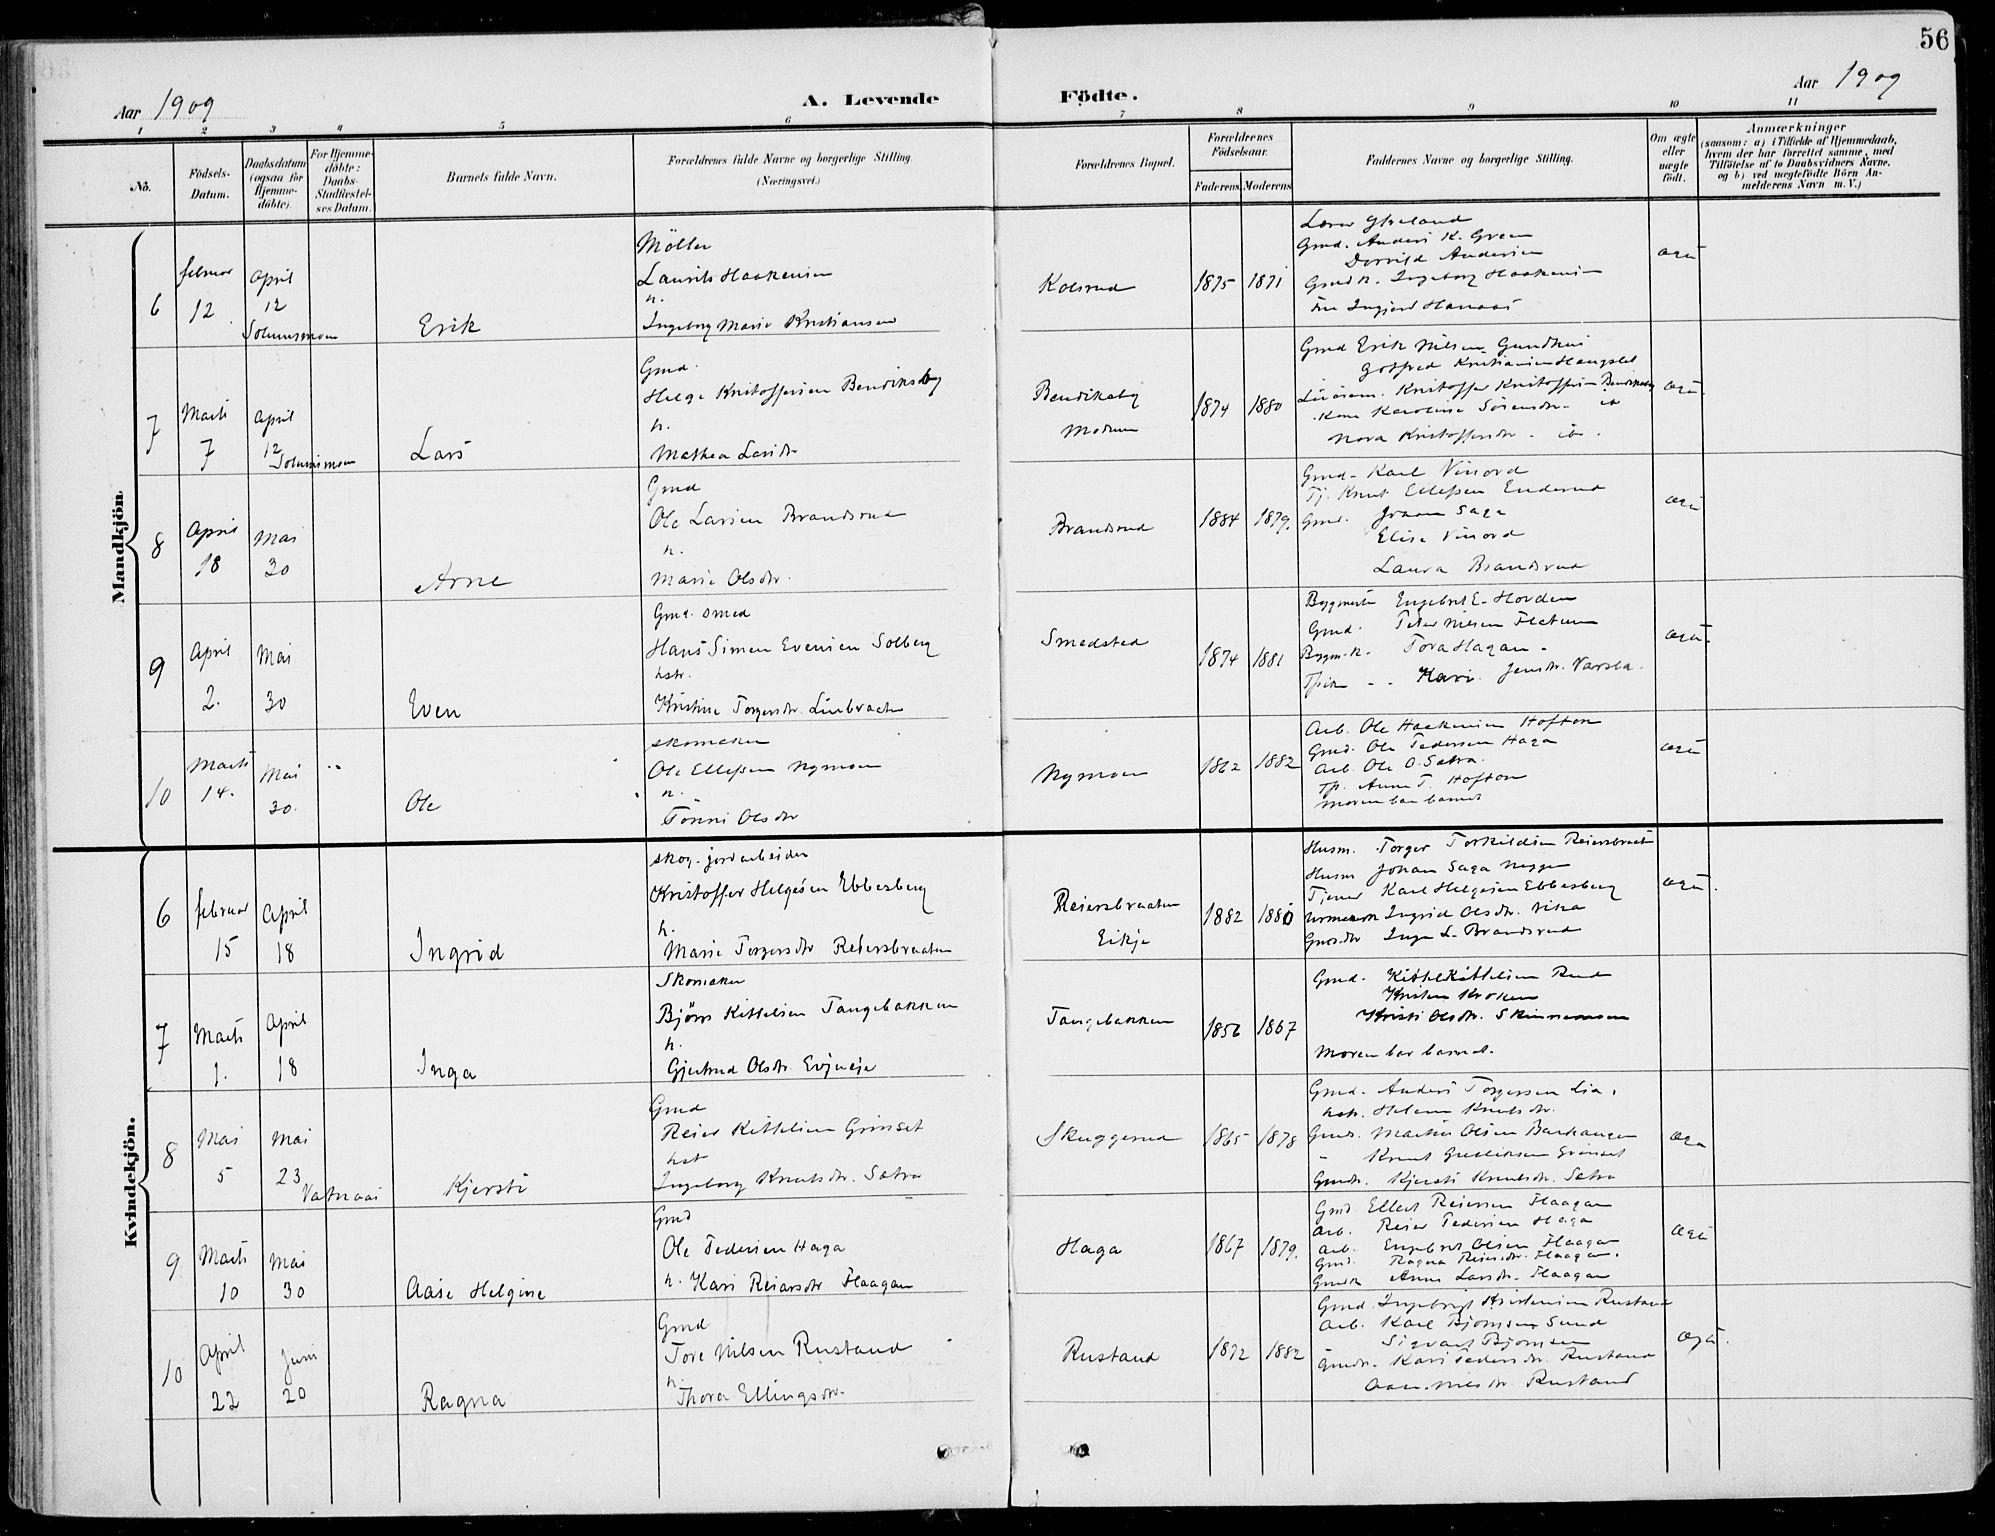 56
Aar 1909
A. Levende
Födte.
Aar 1909
1 2 3 4 5 6 7 8 9 10 11
No.
Födsels-
Datum.
Daabsdatum
(ogsaa for
Hjemme-
döbte).
For Hjemme-
döbte:
Daabs-
Stadfæstel-
ses Datum.
Barnets fulde Navn.
Forældrenes fulde Navne og borgerlige Stilling.
(Næringsvei.)
Forældrenes Bopæl.
Forældrenes
Födselsaar.
Faderens Moderens
Faddernes Navne og borgerlige Stilling.
Om ægte
eller
uægte
födt.
Anmærkninger
(saasom: a) i Tilfælde af Hjemmedaab,
hvem der har forrettet samme, med
Tilföielse af to Daabsvidners Navne.
og b) ved uægtefödte Börn An-
melderens Navn m. V.)
Mandkjön.
6
februar
12
April
12
Erik
Möller
Laurits Haakensen
h.
Ingeborg Marie Kristiansen
Kolsrud
1875 1871
Gmd. Anders K. Green
Gmdk. Ingeborg Haakensen
ægte
7
Marts
7
April
12
Lars
Gmd.
Helge Kristoffersen Bendiksby
h.
Mathea Larsdtr
Bendiksby
Modum
1874 1880
Gmd Erik Nilsen Gundhus
Kristoffer Kristoffersen Bendiksby
Karoline Sörensdtr.
Nora Kristoffersdtr.
ægte
8
April
18
Mai
30
Arne
Gmd
Ole Larsen Brandsrud
h.
Marie Olsdtr.
Brandsrud
1884 1879.
Gmd. Karl Vinord
Tj. Knut Ellefsen Enderud
Gmd. Johan Saga
Elise Vinord
Laura Brandsrud
ægte
9
April
2.
Mai
30
Even
Gmd. smed
Hans Simen Evensen Solberg
hstr.
Kristine Torgersdtr. Linbraaten
Smedsted
1874 1881
Engebret E. Horden
Gmd. Peter Nilsen Flatum
Tora Hagan
Kari Jensdtr. Varsla.
ægte
10
Marts
14.
Mai
30.
Ole
skomaker
Ole Ellefsen Nymoen
h.
Tönni Olsdtr
Nymoen
1862 1882
Arb. Ole Haakensen Hofton
Gmd. Ole Pedersen Haga
Arb. Ole O. Sætra.
Anne T. Hofton
Moren bar barnet
ægte
Kvindekjön.
6
februar
15
April
18
Ingrid
skog. jordarbeider
Kristoffer Helgesen Ebbesberg
h.
Marie Torgersdtr Reiersbraaten
Reiersbraaten
Eikje
1882 1880
Husm. Torger Torkildsen Reiersbraaten
Husm Johan Saga
Tjener Karl Helgesen Ebbesberg
Ingrid Olsdtr. Vika
Inga L. Brandsrud
ægte.
7
Marts
1.
April
18
Inga
Skomaker
Björn Kittelsen Tangebakken
h.
Gjertrud Olsdtr.
Tangebakken
1856 1867
Gmd. Kittel Kittelsen Rud
Kristen Kroken
Kristi Olsdtr.
Moren bar barnet.
8
Mai
5
Mai
23
Vatnaas
Kjersti
Gmd
Reier Kittelsen Grimset
hst
Ingeborg Knutsdtr. Sætra
Skuggerud
1865 1878
Gmd. Anders Torgersen Lia.
hstr. Helene Knutsdtr.
Gmd. Martin Olsen
Knut Gulliksen Grimset
Gmdr. Kjersti Knutsdtr. Sætra
ægte
9
Marts
10
Mai
30
Aase Helgine
Gmd
Ole Pedersen Haga
h. Kari Reiarsdtr Flaagan
Haga
1867 1879.
Gmd. Ellert Reiersen Flaagan
Arb. Reier Pedersen Haga
Arb. Engebret Olsen Flaagan
Gmd. Ragna Reiersdtr. Flaagan.
Gmdk Anne Larsdtr. Flaagan
ægte
10
April
22
Juni
20
Ragna
Gmd
Tore Nilsen Rustand
h.
Thora Ellingsdtr.
Rustand
1872 1882
Gmd. Ingebrigt Kristensen Rustand
Arb. Karl Björnsen Sund
Sigvart Björnsen
Gmdr. Kari Pedersdtr. Rustand
Nilsdtr. Rustand
ægte.